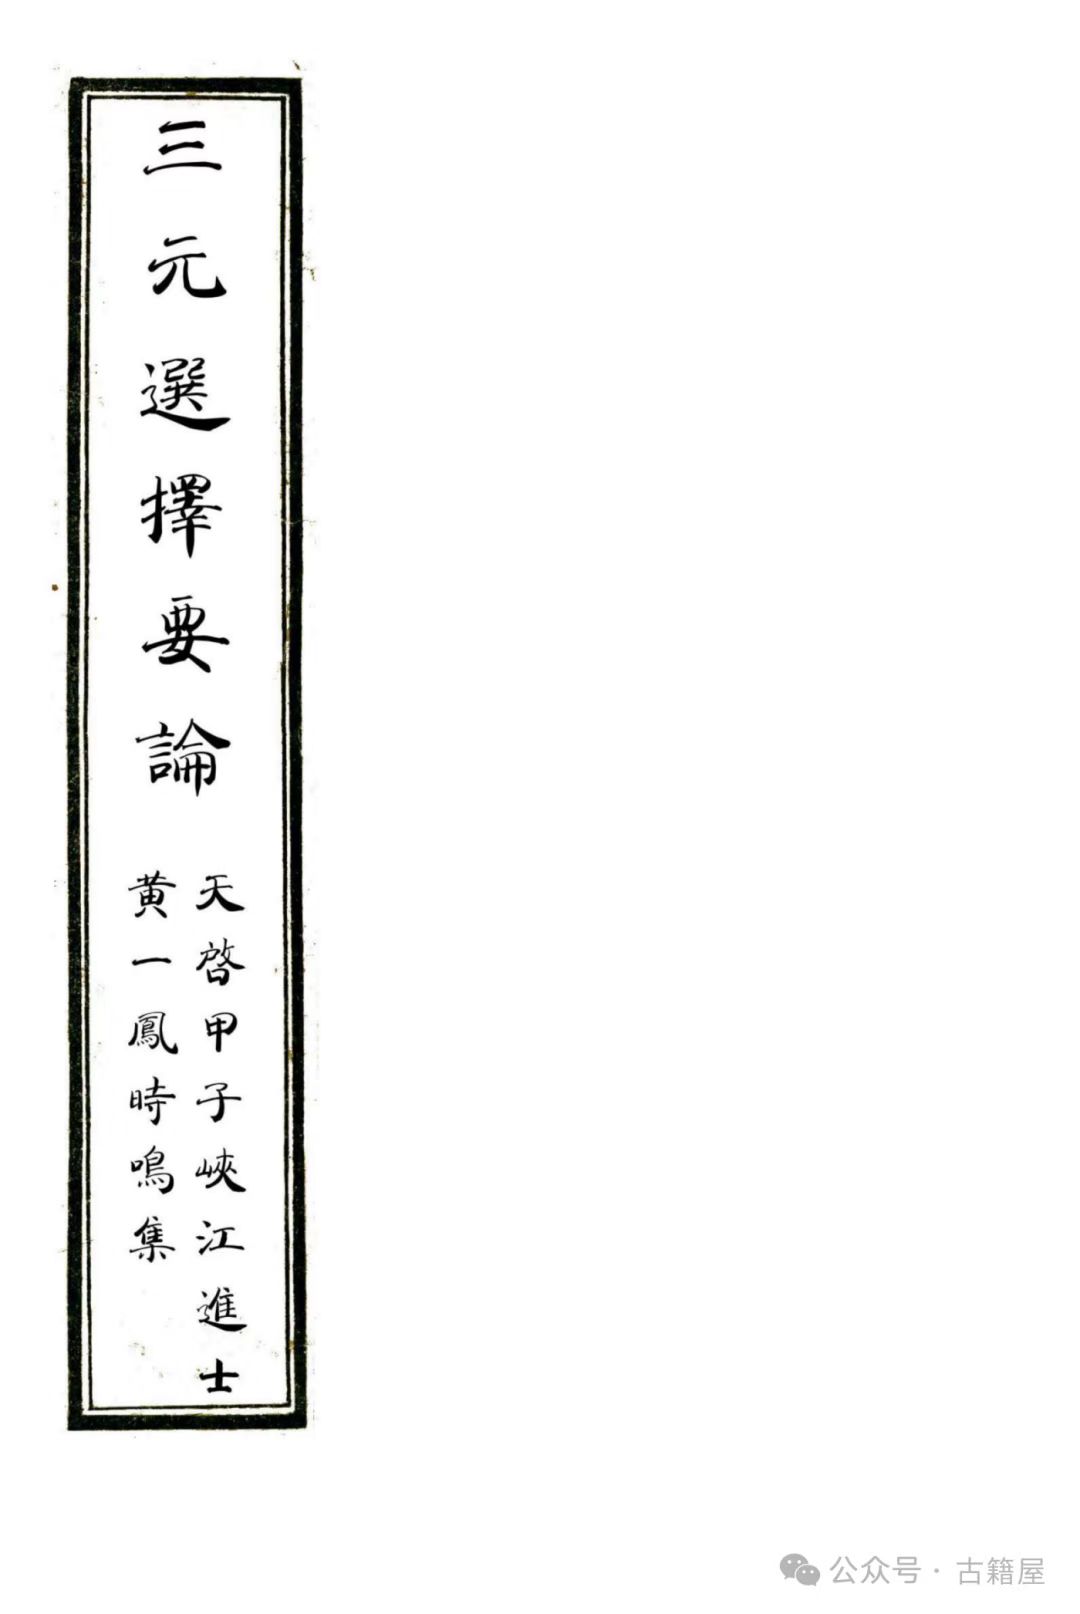 三元選擇要論
天啓甲子峽江進士
黄一鳳時鳴集
公众号·古籍屋